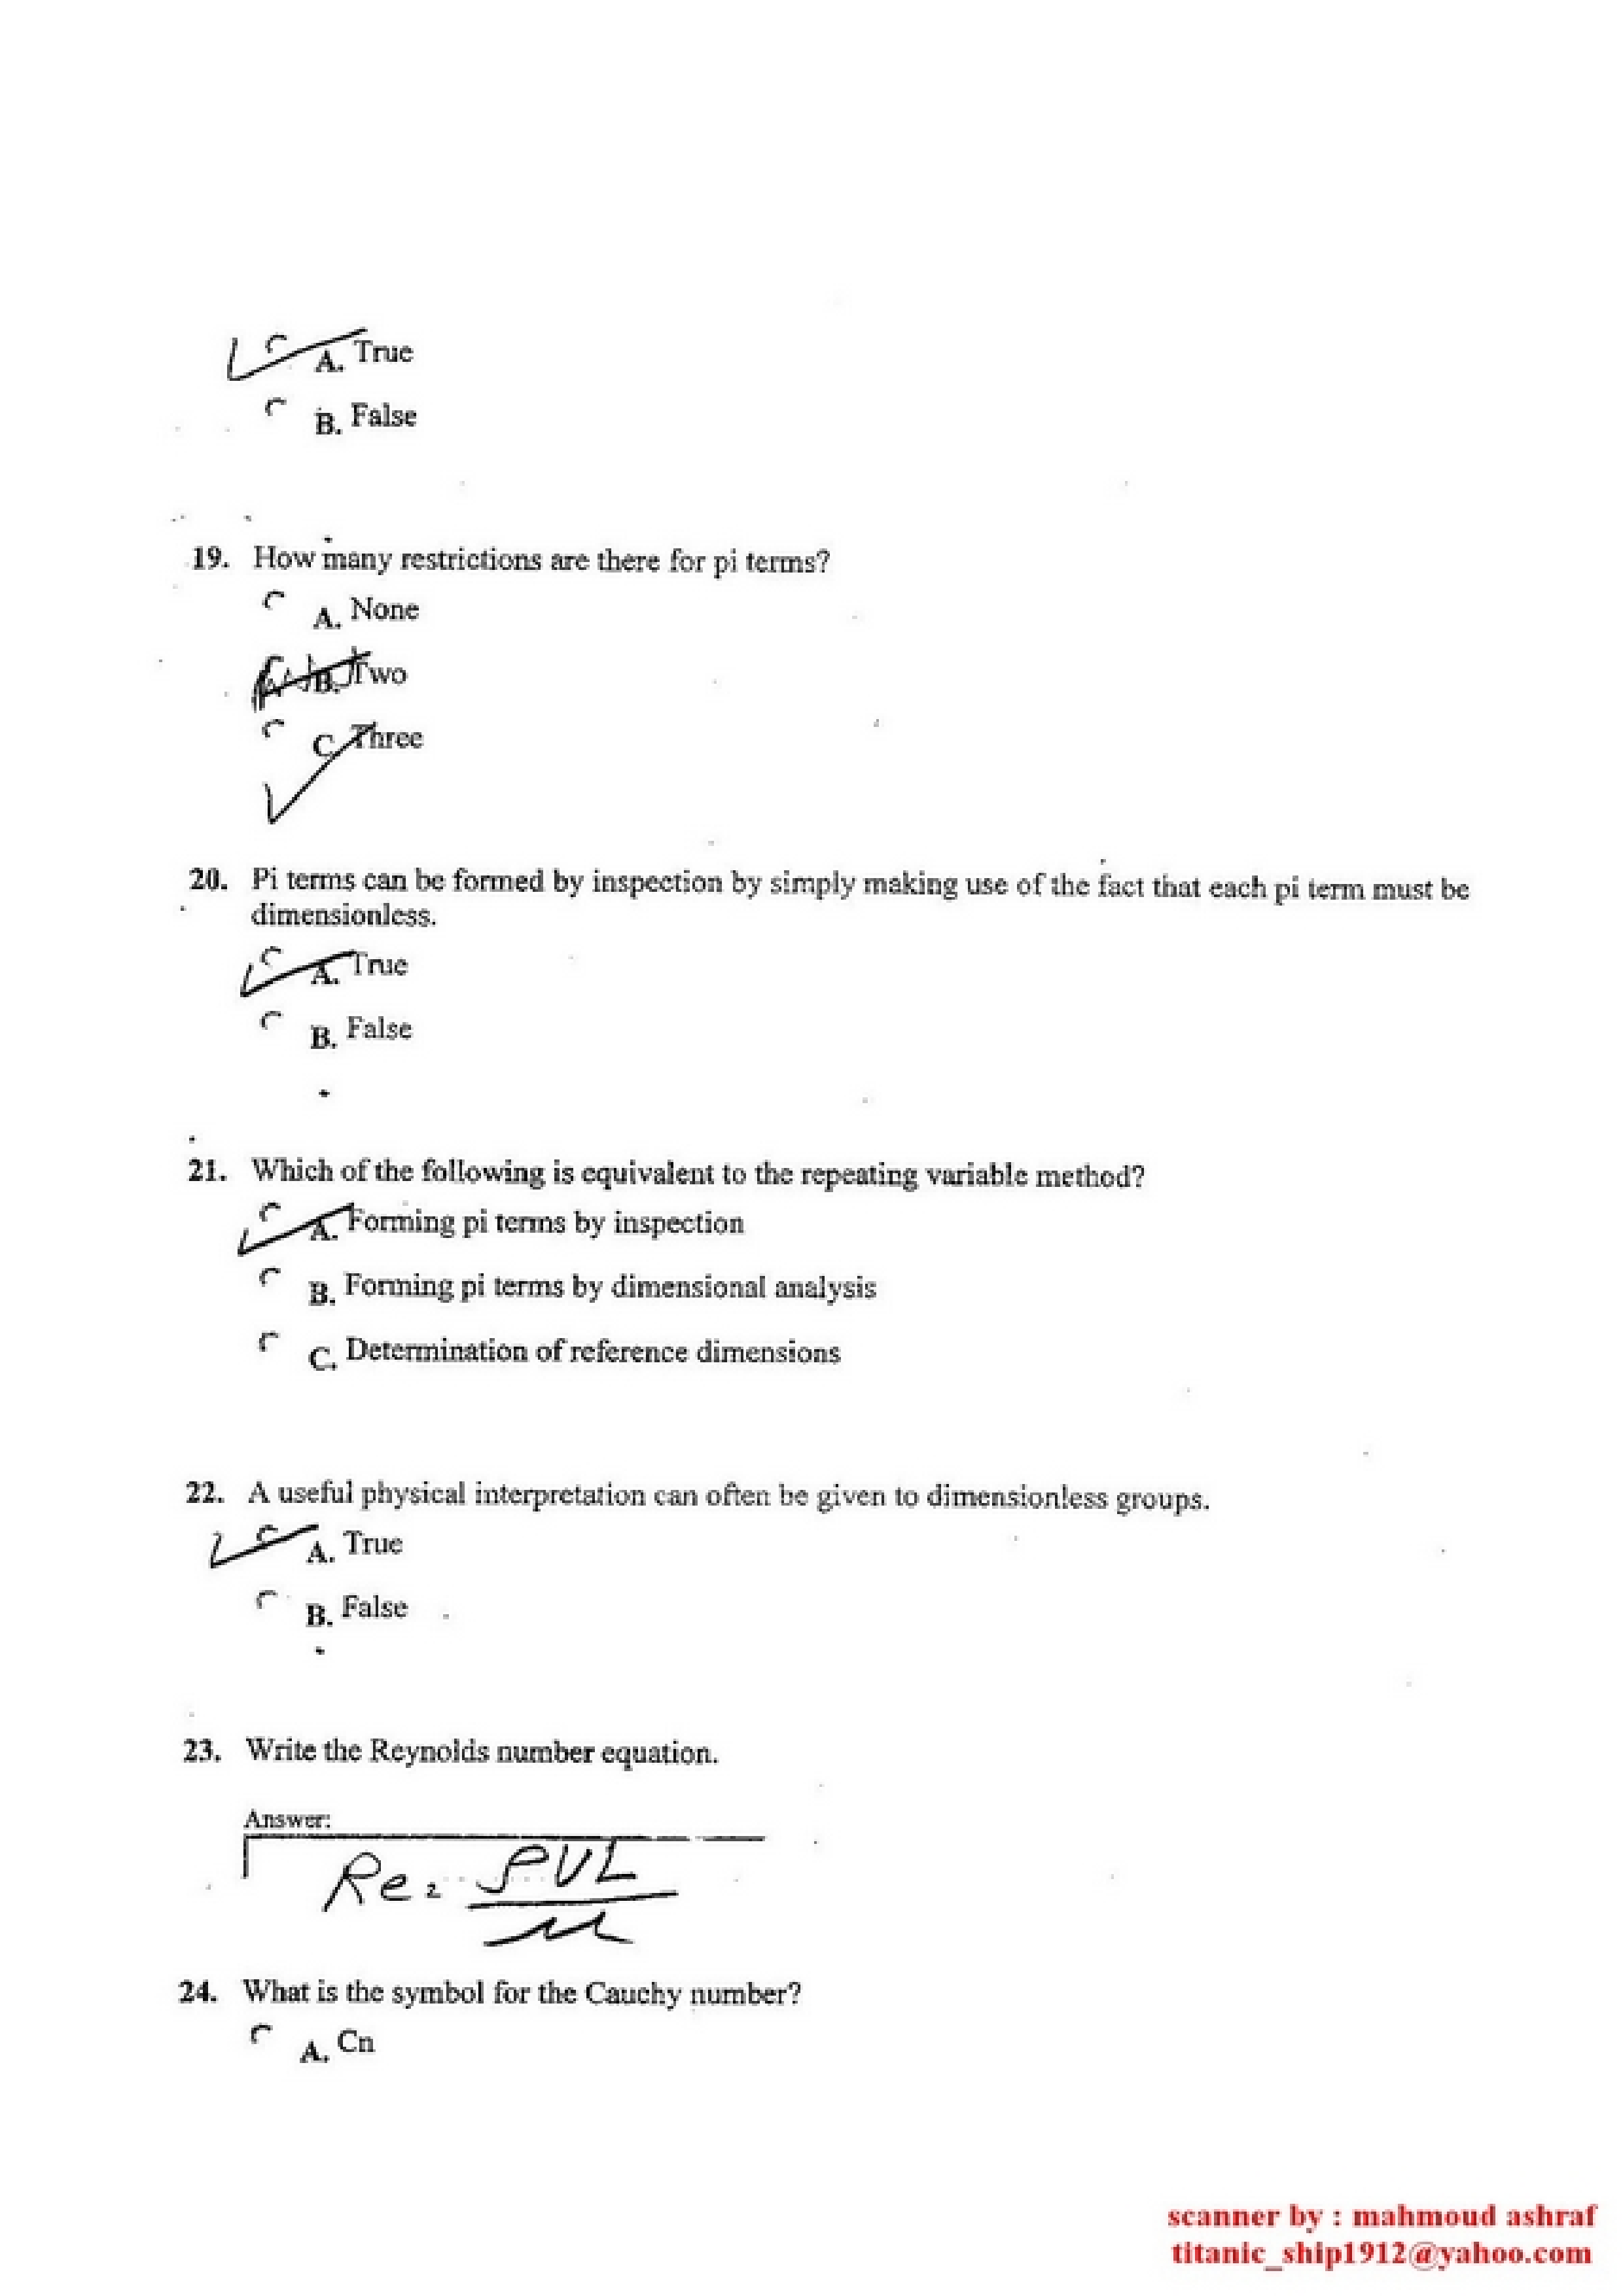 A. True
B. False
19. How many restrictions are there for pi terms?
A. None
B. Two
C. Three
20. Pi terms can be formed by inspection by simply making use of the fact that each pi term must be
dimensionless.
A. True
B. False
21. Which of the following is equivalent to the repeating variable method?
A. Forming pi terms by inspection
B. Forming pi terms by dimensional analysis
C. Determination of reference dimensions
22. A useful physical interpretation can often be given to dimensionless groups.
A. True
B. False
23. Write the Reynolds number equation.
Answer:
Re = ρVL
μ
24. What is the symbol for the Cauchy number?
A. Cn
scanner by : mahmoud ashraf
titanic_ship1912@yahoo.com